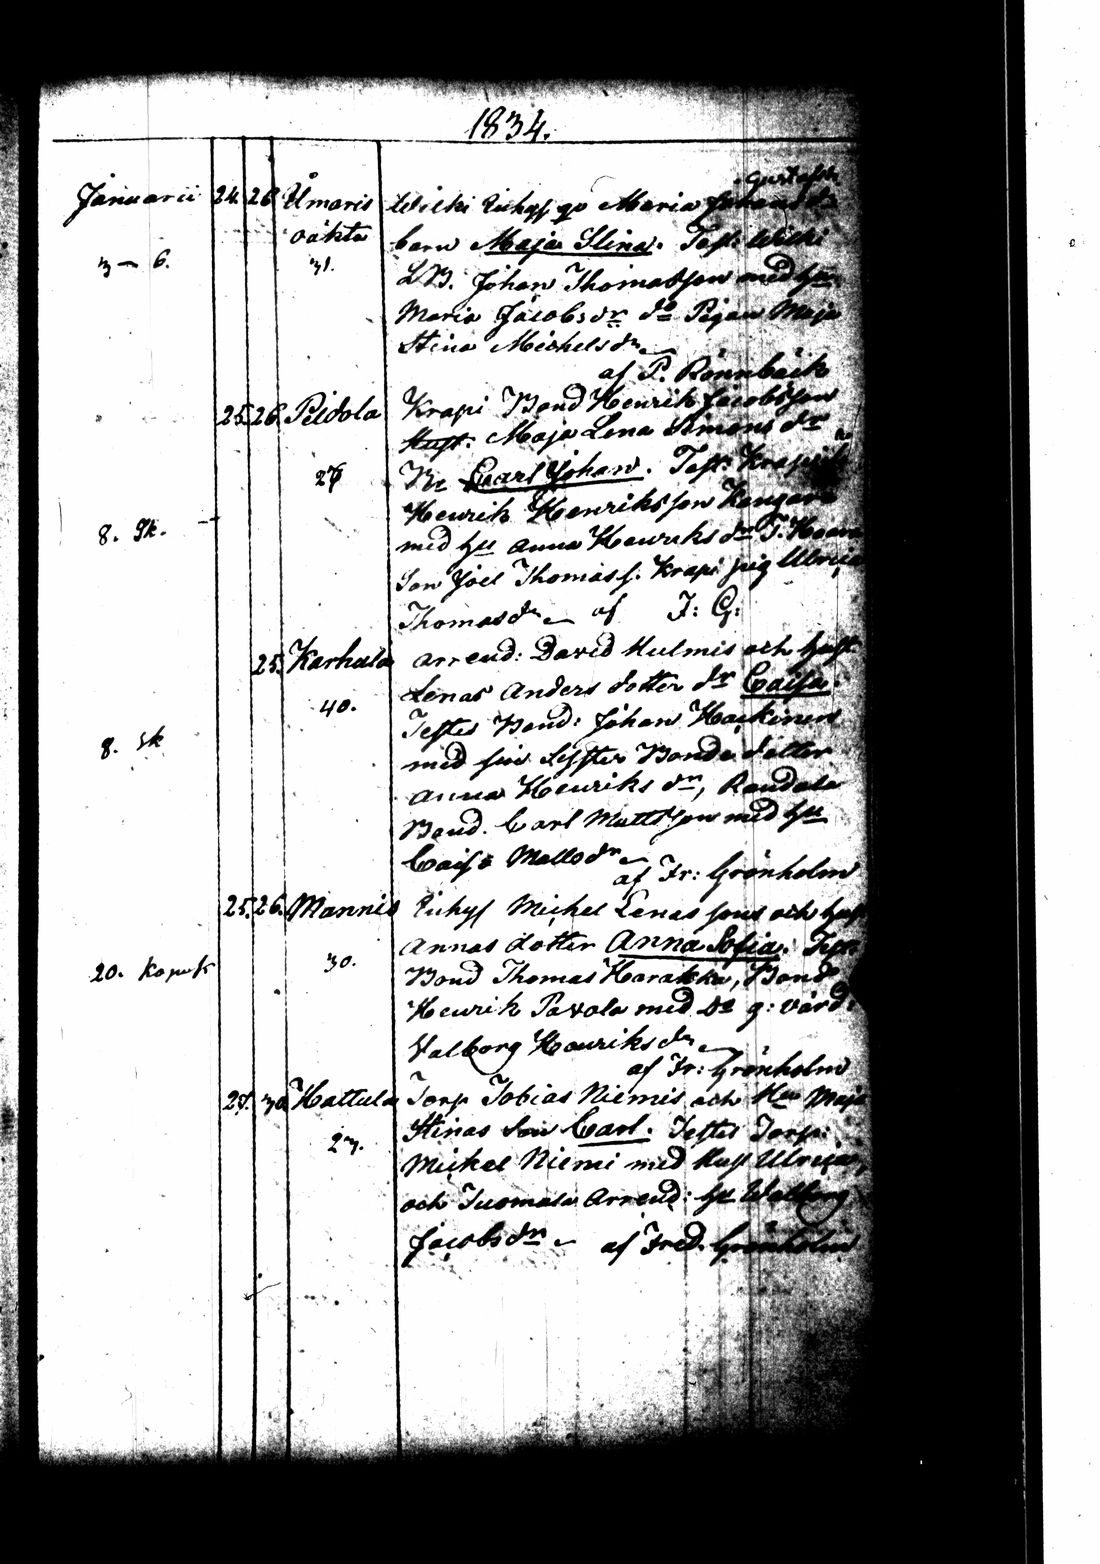 1834.
Januarii 24. 26. Umaris Wilki Inhys qv Maria Gustafs
väkta barn Maja Stina. Test: Wilki
3 - 6. 31. L.B. Johan Thomasson med hu
Maria Jacobsdr do Pigan Maja
Stina Michelsdr
af P. Rönnbäck
25. 26. Peidola Krapi Bond Henrik Jacobsson
Hust. Maja Lena Simonsdr
27 Carl Johan. Test: Krapi
Henrik Henriksson
8. Sk. med hu Anna Henriksdr
Son Joel Thomass. Krapi pig Ulrica
Thomasdr af F: G:
25. Karhula Arrend: David Hulmis och hust
40. Lenas Anders dotter dr Caisa.
Testes Bond: Johan
8. Sk med sin Bonde dotter
Anna Henriksdr, Raudala
Bond. Carl Mattsson med hu
Caisa Mattsdr
af Fr: Grönholm
25. 26. Mannis Inhys Michel Lenas sons och hus
Annas dotter Anna Sofia. Test.
20. Kopek 30. Bond Thomas Harakka, Bond
Henrik Pavola med
Valborg Henriksdr
af Fr: Grönholm
27. 30 Hattula Torp Tobias Niemis och Hu Maja
Stinas Son Carl. Testes Torp:
23. Michel Niemi med Hust Ulrica,
och Tuomala Arrend: hu Walborg
Jacobsdr af Fred. Grönholm